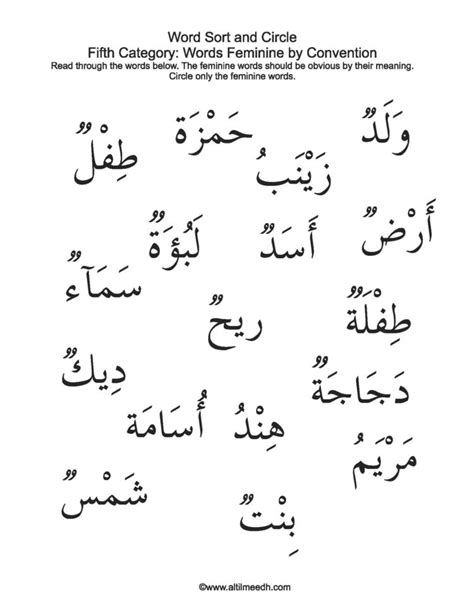 Word Sort and Circle
Fifth Category: Words Feminine by Convention
Read through the words below. The feminine words should be obvious by their meaning.
Circle only the feminine words.
وَلَدٌ حَمْزَة طِفْلٌ
زَيْنَبُ
أَرْضٌ أَسَدٌ لَبُؤَةٌ
سَمَآءٌ
طِفْلَةٌ رِيحٌ
دَجَاجَةٌ دِيكٌ
هِنْدُ أُسَامَة
مَرْيَمُ
بِنْتٌ شَمْسٌ
©www.altilmeedh.com